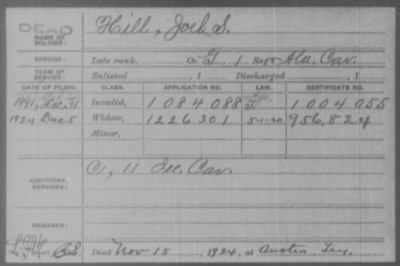 DEAD
NAME OF SOLDIER: Hill, Joel S.
SERVICE: Late rank, Co. I, 1 Reg't Ala. Cav.
TERM OF SERVICE: Enlisted , 1 Discharged , 1
DATE OF FILING. CLASS. APPLICATION NO. LAW. CERTIFICATE NO.
1891, 31 Invalid, 1084088 1004055
1924 Dec 5 Widow, 1226301 5-1-20 956,824
Minor,
ADDITIONAL SERVICES: C, 11 Cav.
REMARKS:
Died Nov-15 , 1924, at Austin